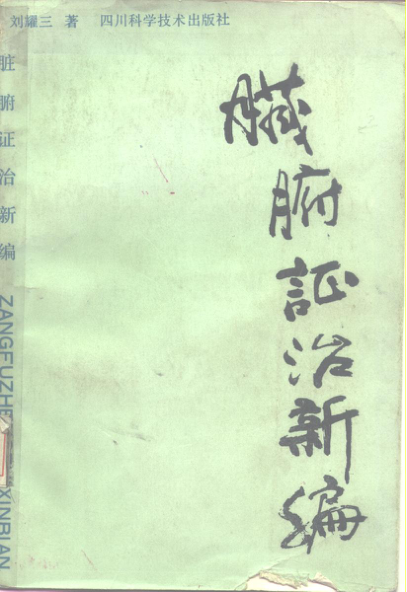 刘耀三 著 四川科学技术出版社
臟腑証治新編
脏腑证治新编
ZANGFUZHE
XINBIAN